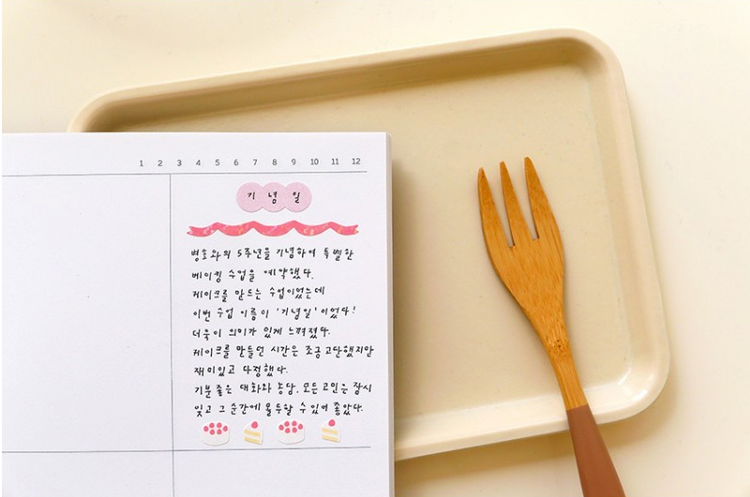 1 2 3 4 5 6 7 8 9 10 11 12
기념일
병호와의 5주년을 기념하여 특별한
베이킹 수업을 예약했다.
케이크를 만드는 수업이었는데
이번 수업 이름이 '기념일'이었다!
더욱이 의미가 있게 느껴졌다.
케이크를 만들던 시간은 조금 고단했지만
재미있고 다정했다.
기분좋은 대화와 농담. 모든 고민은 잠시
잊고 그 순간에 몰두할 수 있어 좋았다.